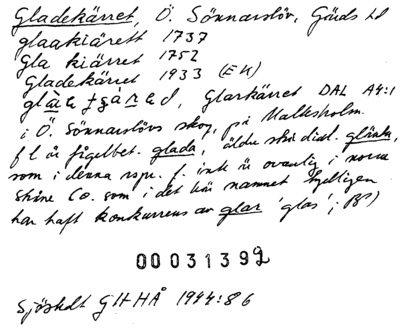 Gladekärret, Ö. Sönnarslöv, Gärds hd
glaakiärett 1737
Gla kiärret 1752
Gladekärret 1933 (EK)
Glarkärret DAL A4:1
i Ö. Sönnarslövs skog, på Maltesholm.
f l är fågelbet. glada, äldre skå dial. glänta,
som i denna rspr. f. inte är ovanlig i norra
Skåne Co. som i det här namnet tydligen
har haft konkurrens av glar 'glas'; BP)
00031392
Sjöstedt GHHÅ 1944:86